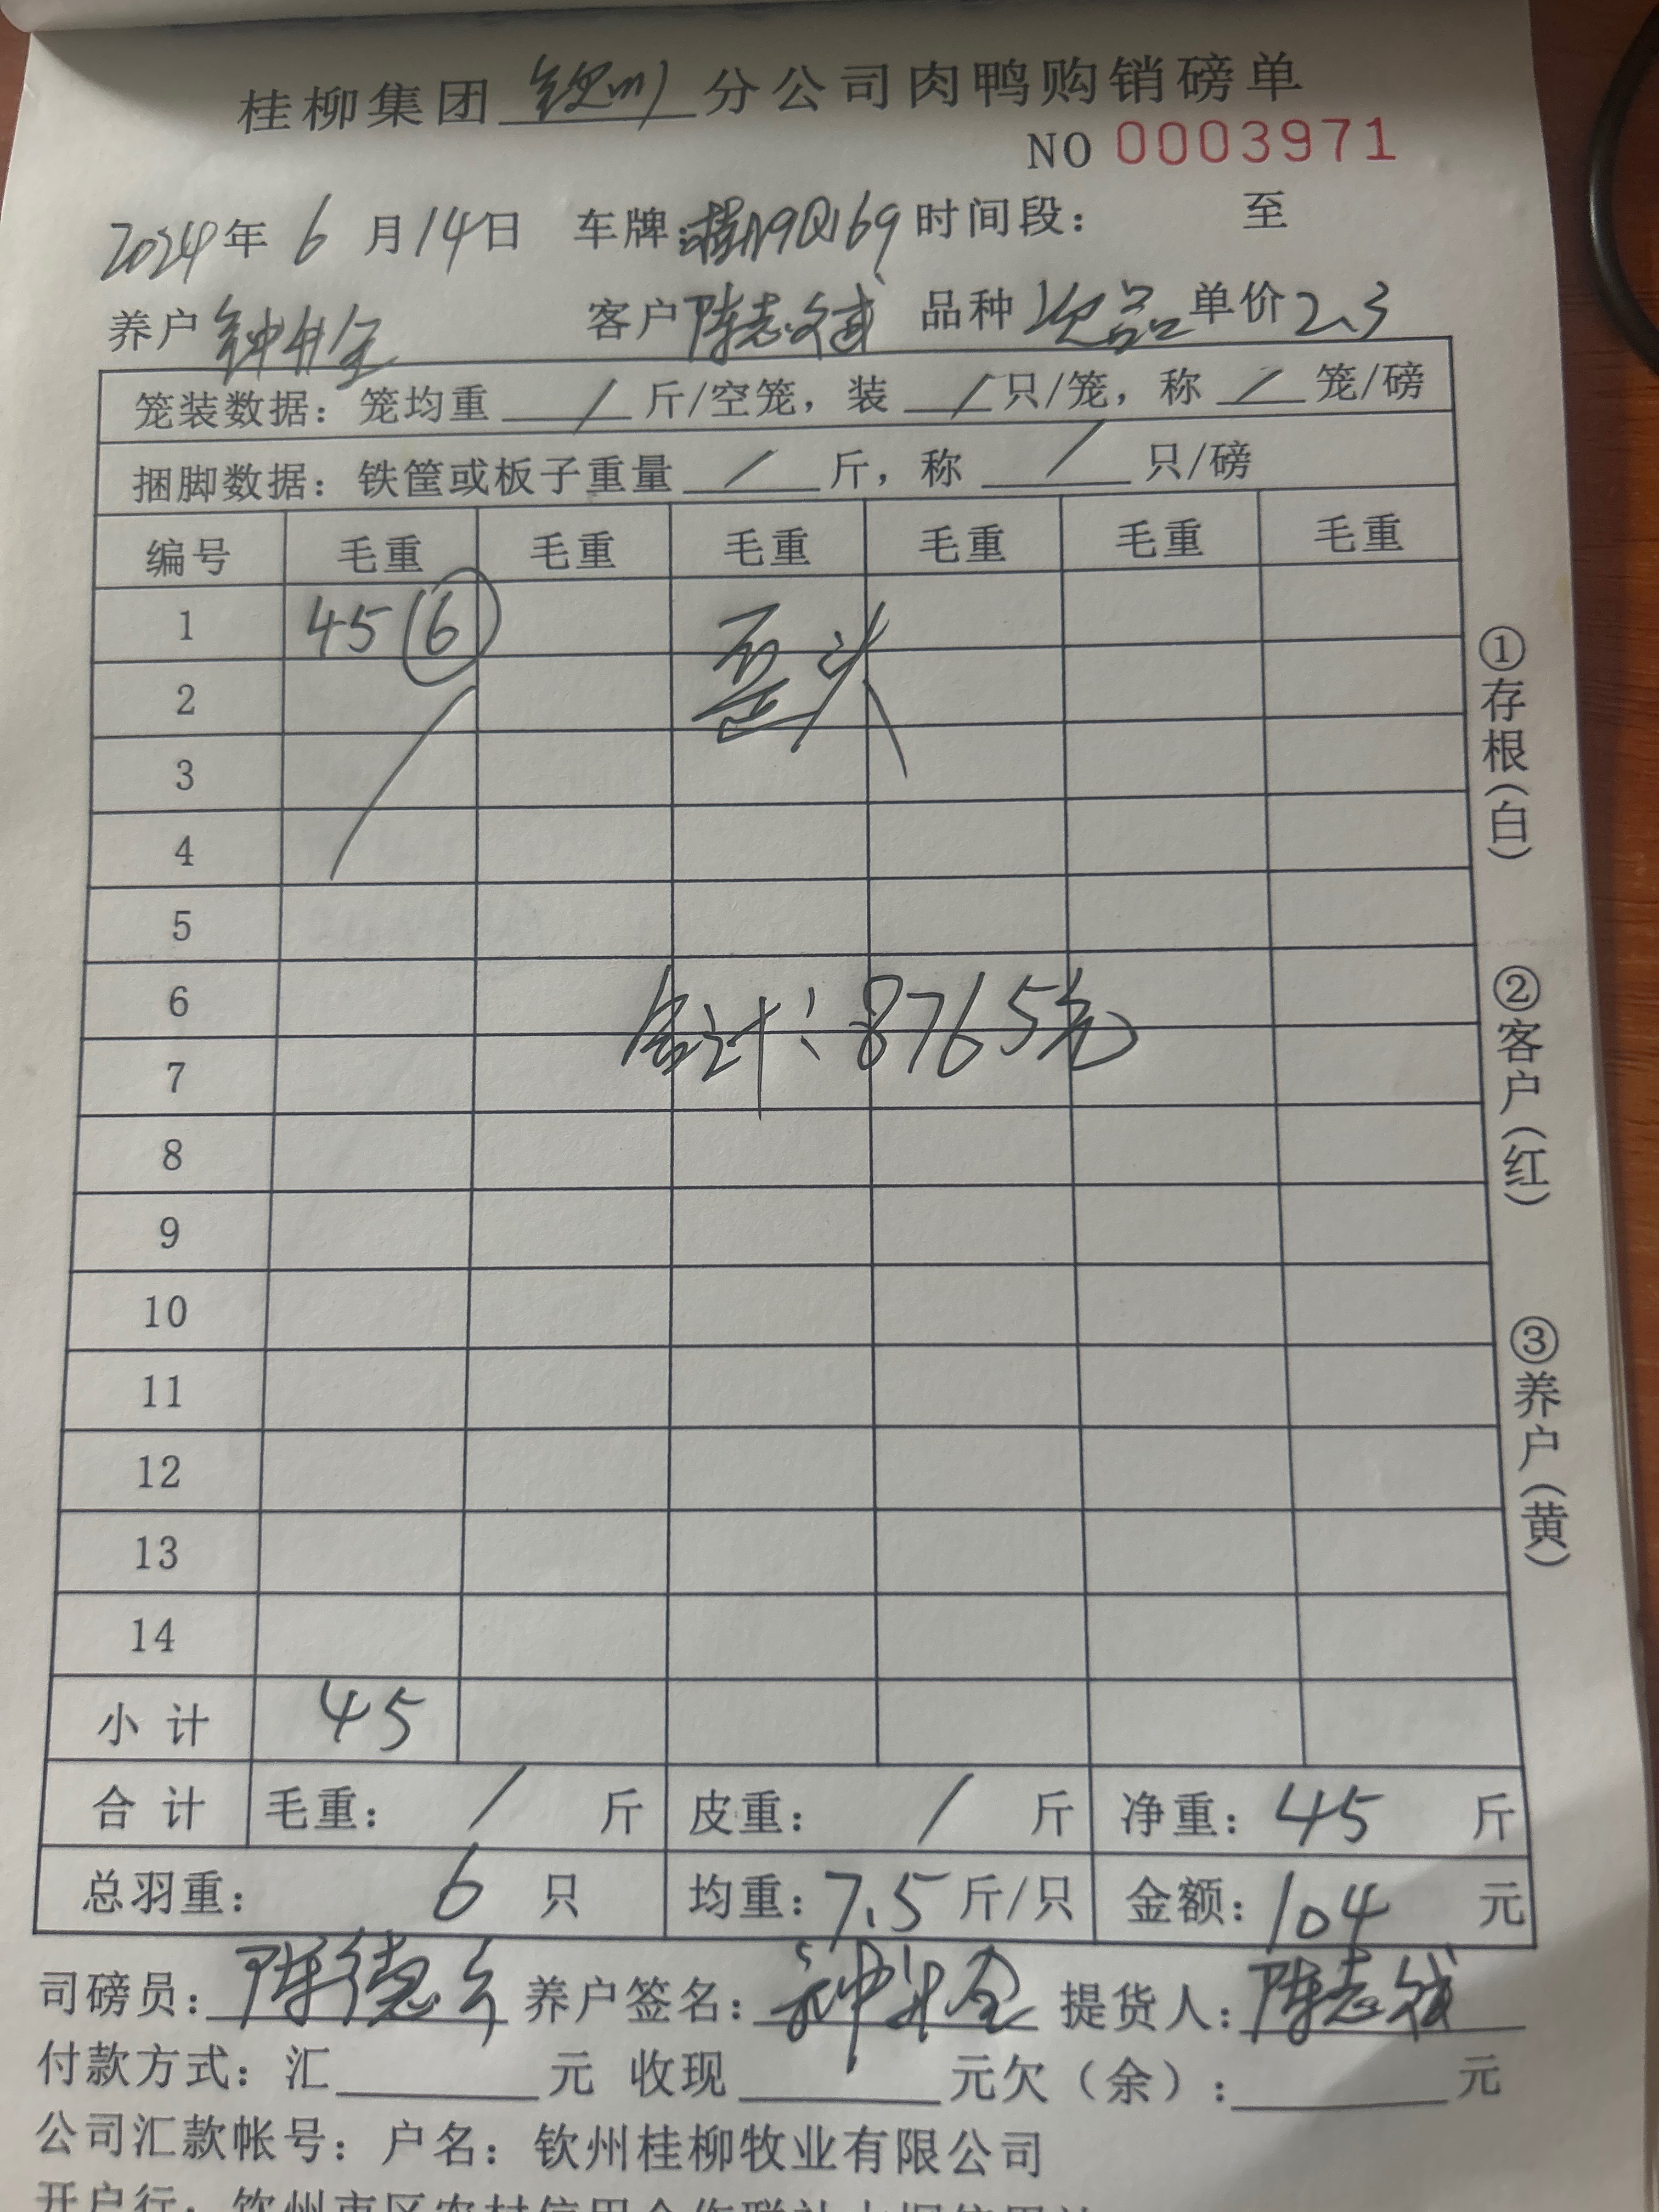 桂柳集团 钦州 分公司肉鸭购销磅单
NO 0003971
2024年 6 月14日 车牌:桂 9Q169 时间段： 至
养户 钟 全 客户 陈志斌 品种 次品 单价 2.3
笼装数据：笼均重 / 斤/空笼，装 / 只/笼，称 / 笼/磅
捆脚数据：铁筐或板子重量 / 斤，称 / 只/磅
编号 毛重 毛重 毛重 毛重 毛重 毛重
1 45 6 歪头
2
3
4
5
6
合计：8765元
7
8
9
10
11
12
13
14
小计 45
合计 毛重： / 斤 皮重： / 斤 净重：45 斤
总羽重： 6 只 均重：7.5斤/只 金额：104 元
司磅员：陈德 养户签名：钟 全 提货人：陈志斌
付款方式：汇 元 收现 元欠（余）： 元
公司汇款帐号：户名：钦州桂柳牧业有限公司
开户行：钦州市区农村信用合作联社
①存根（白）
②客户（红）
③养户（黄）